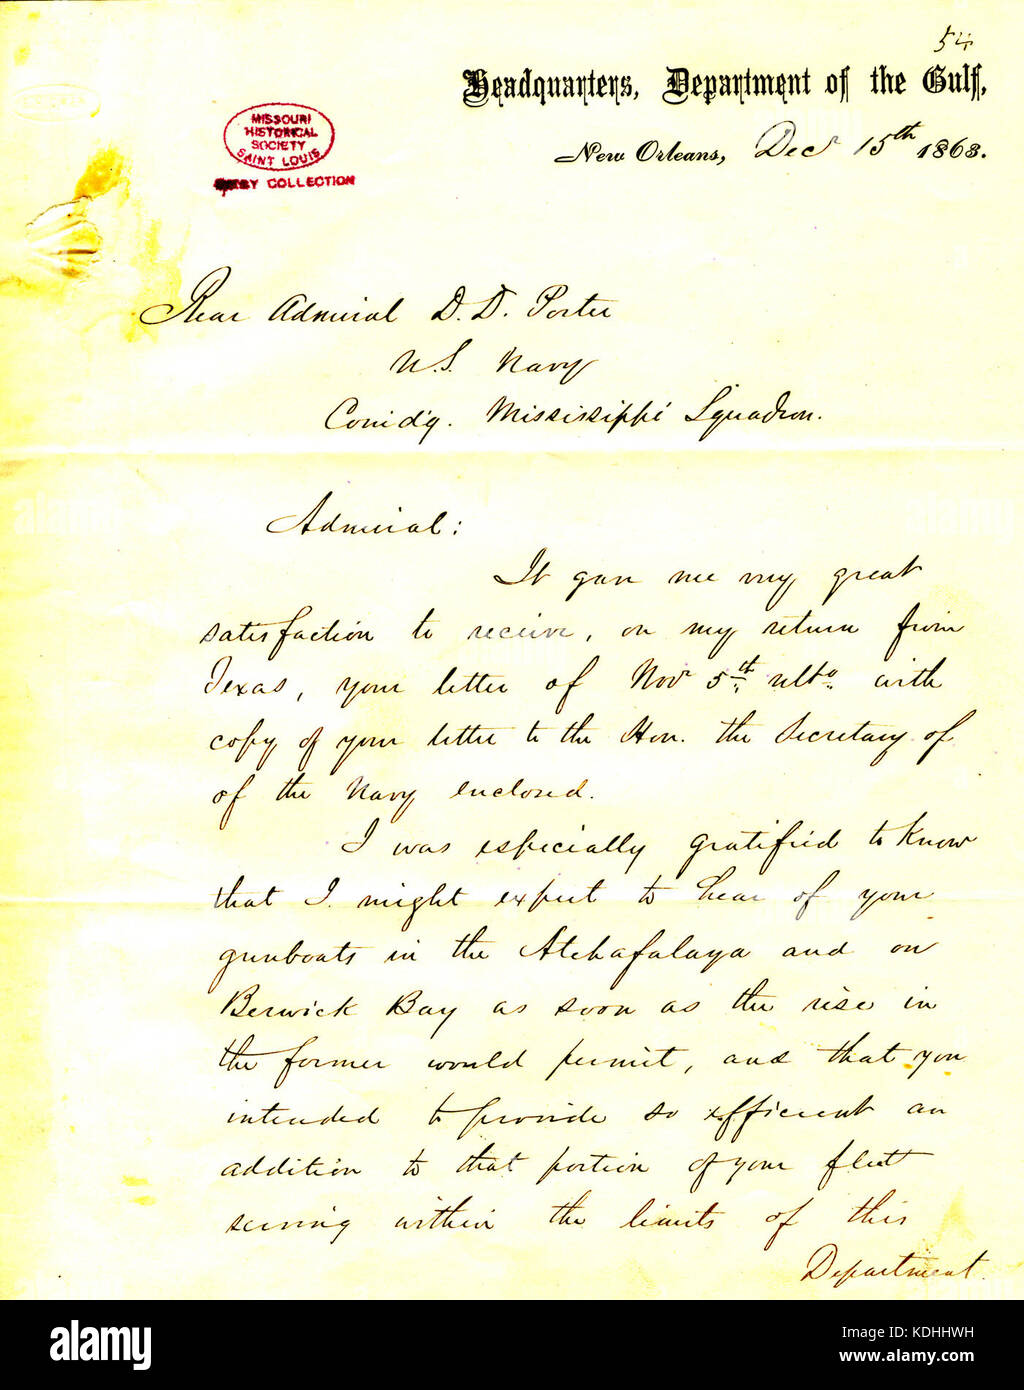 54
Headquarters, Department of the Gulf,
New Orleans, Decr 15th 1863.
MISSOURI
HISTORICAL
SOCIETY
SAINT LOUIS
COLLECTION
Rear Admiral D. D. Porter
U.S. Navy
Comd'g. Mississippi Squadron.
Admiral:
It gave me very great
satisfaction to receive, on my return from
Texas, your letter of Nov 5th ulto with
copy of your letter to the Hon. the Secretary of
of the Navy enclosed.
I was especially gratified to know
that I might expect to hear of your
gunboats in the Atchafalaya and on
Berwick Bay as soon as the rise in
the former would permit, and that you
intended to provide so efficient an
addition to that portion of your fleet
serving within the limits of this
Department.
alamy
Image ID: KDHHWH
www.alamy.com